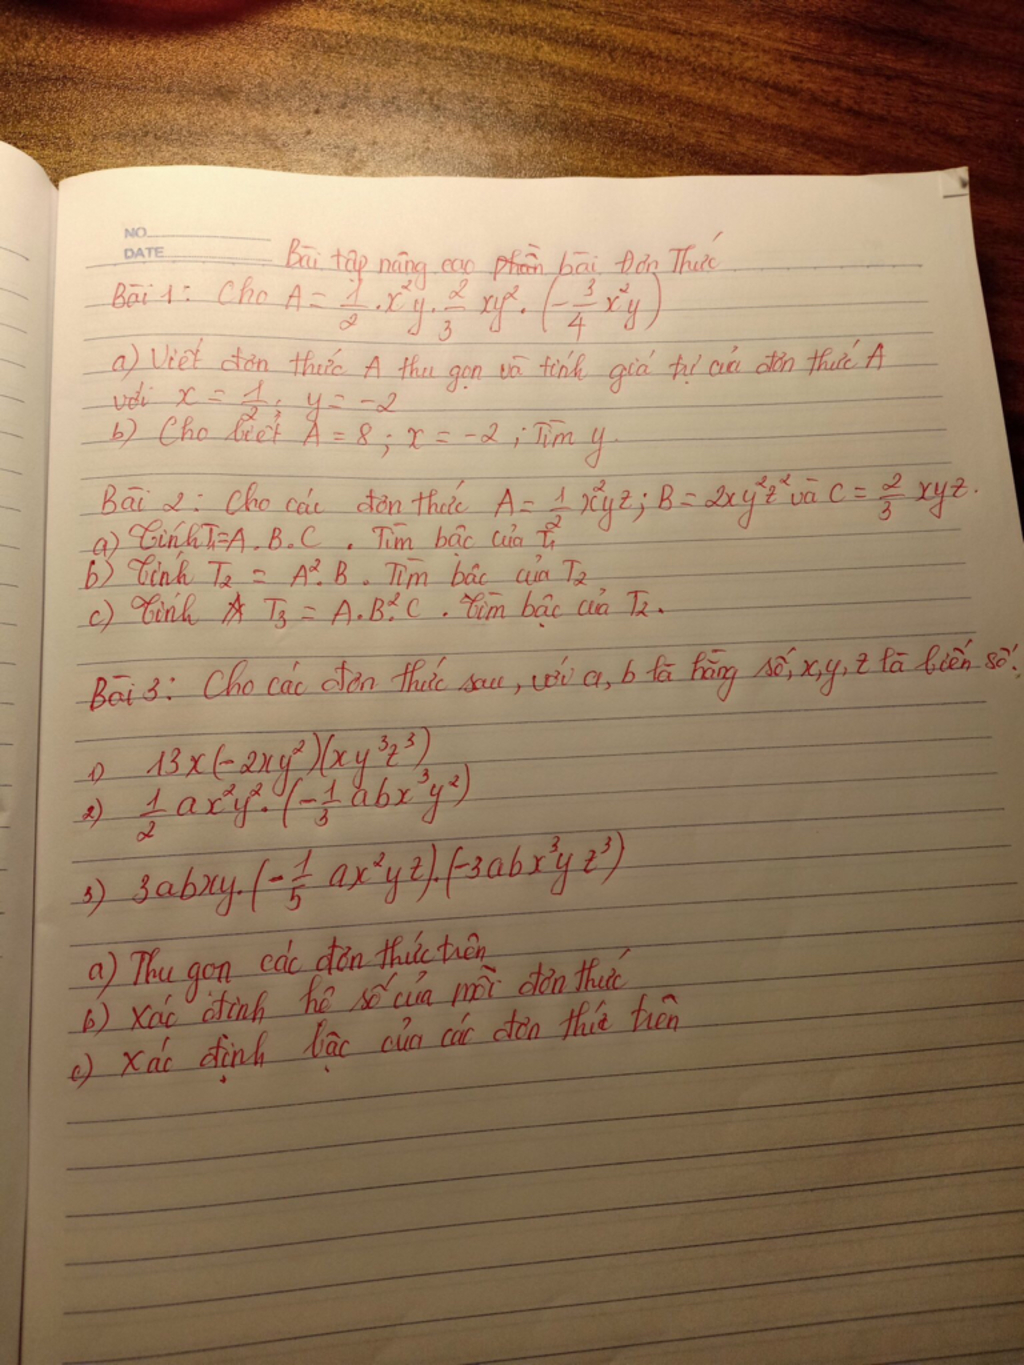 NO
DATE
Bài tập nâng cao phần bài Đơn Thức
Bài 1: Cho A = 1/2 . x²y . 2/3 xy² . (-3/4 x²y)
a) Viết đơn thức A thu gọn và tính giá trị của đơn thức A
với x = 1/2; y = -2
b) Cho biết A = 8; x = -2; Tìm y.
Bài 2: Cho các đơn thức A = 1/2 x²yz; B = 2xy²z² và C = 2/3 xyz.
a) Tính T₁ = A.B.C . Tìm bậc của T₁
b) Tính T₂ = A².B . Tìm bậc của T₂
c) Tính T₃ = A.B².C . Tìm bậc của T₂.
Bài 3: Cho các đơn thức sau, với a, b là hằng số, x, y, z là biến số.
1) 13x(-2xy²)(xy³z³)
2) 1/2 ax²y² . (-1/3 abx³y²)
3) 3abxy . (-1/5 ax²yz) . (-3abx³yz³)
a) Thu gọn các đơn thức trên
b) Xác định hệ số của mỗi đơn thức
c) Xác định bậc của các đơn thức trên